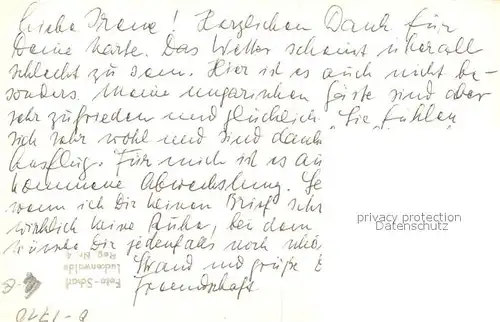 Liebe Irene! Herzlichen Dank für
Deine Karte. Das Wetter scheint überall
schlecht zu sein. Hier ist es auch nicht be-
sonders. Meine ungarischen Gäste sind aber
sehr zufrieden und glücklich. Sie fühlen
sich sehr wohl und sind dankb
Ausflug. Für mich ist es au
kommene Abwechslung. Se
wenn ich Dir keinen Brief schr
wirklich keine Ruhe, bei dem
wünsche Dir jedenfalls noch
Strand und grüße
Freundschaft
privacy protection
Datenschutz
Foto-Scharf
Luckenwalde
Reg. Nr. 4